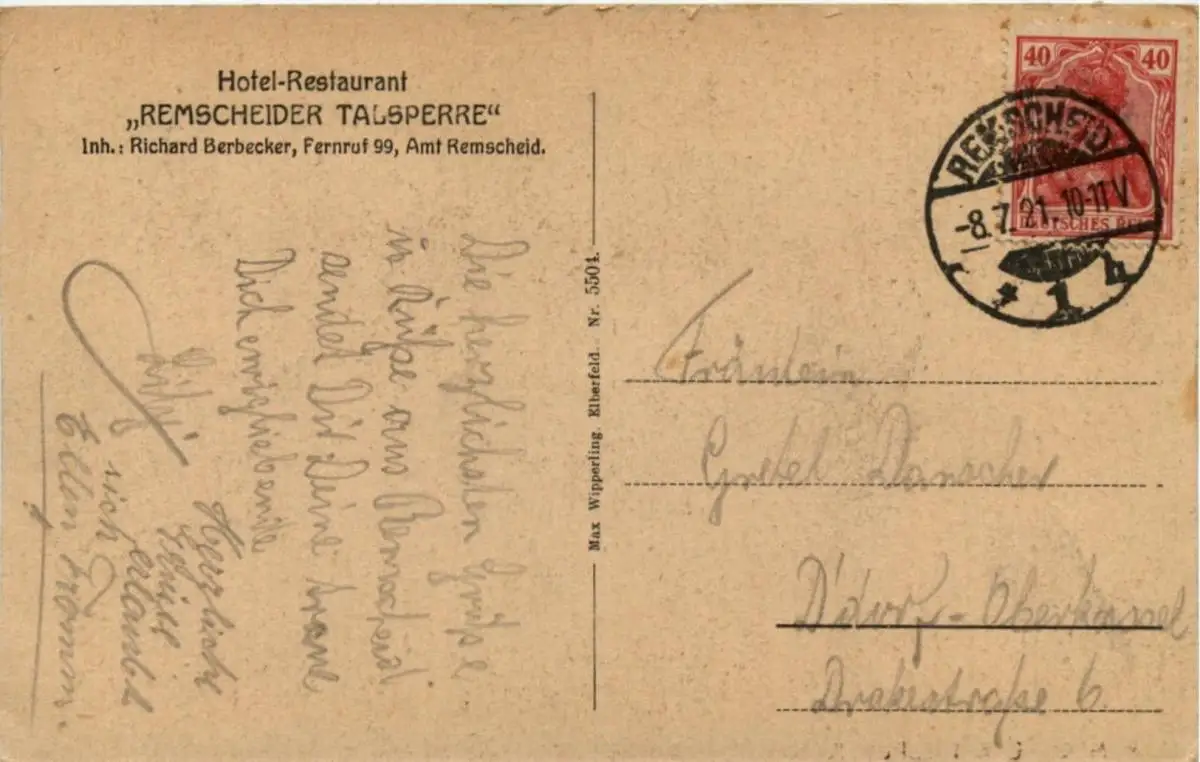 Hotel-Restaurant
„REMSCHEIDER TALSPERRE“
Inh.: Richard Berbecker, Fernruf 99, Amt Remscheid.
40 40
REMSCHEID
-8.7.21. 10-11 V
DEUTSCHES REI
* 1 h
Max Wipperling. Elberfeld. Nr. 5504.
Die herzlichsten Grüße
u Küße aus Remscheid
sendet Dir Deine
Dich ewigliebende
Herzliche
Grüße
erlaubt
sich
Ellen Fromm.
Fräulein
Gretel
D'dorf-Oberkassel
Drakestraße 6